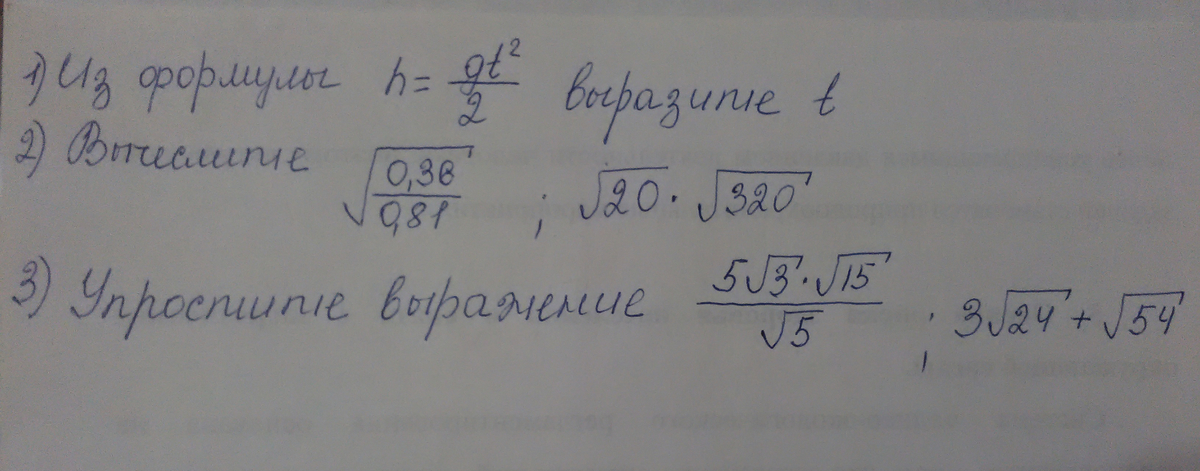 1) Из формулы h = gt²/2 выразите t
2) Вычислите √(0,36/0,81) ; √20 · √320
3) Упростите выражение (5√3 · √15)/√5 ; 3√24 + √54